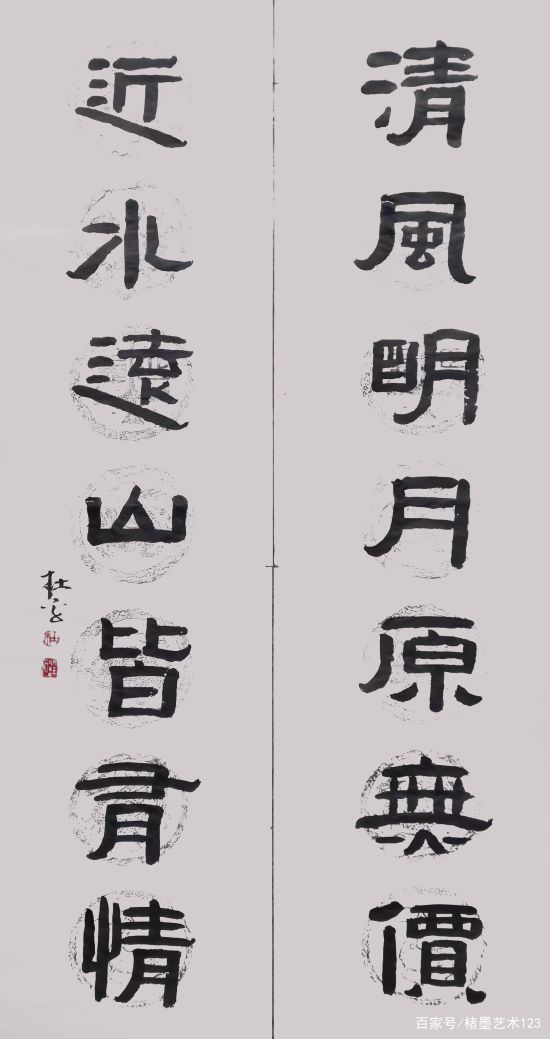 清風明月原無價
近水遠山皆有情
百家号/楮墨艺术123